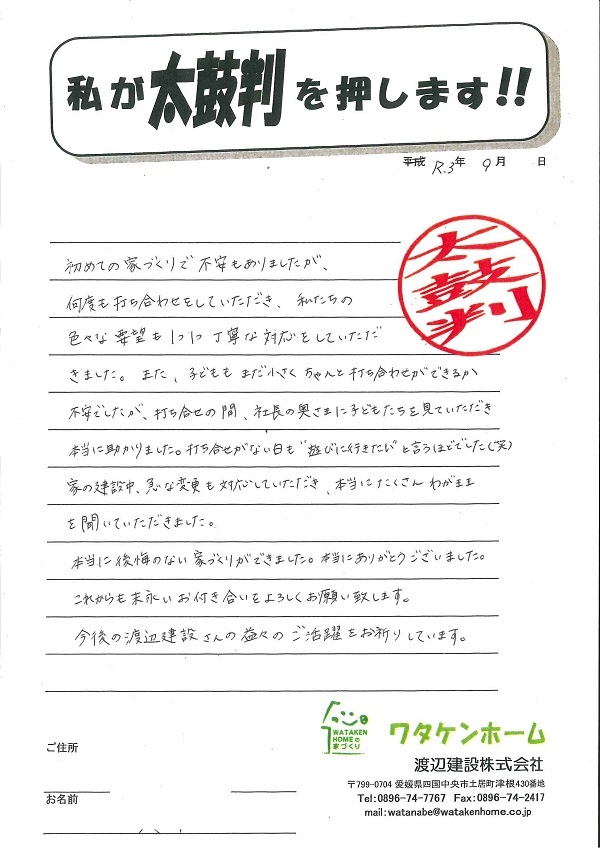 私が太鼓判を押します!!
平成 R.3年 9月 日
太鼓判
初めての家づくりで不安もありましたが、
何度も打ち合わせをしていただき、私たちの
色々な要望も1つ1つ丁寧な対応をしていただ
きました。また、子どももまだ小さくちゃんと打ち合わせができるか
不安でしたが、打ち合せの間、社長の奥さまに子どもたちを見ていただき
本当に助かりました。打ち合せがない日も"遊びに行きたい"と言うほどでした(笑)
家の建設中、急な変更も対応していただき、本当にたくさんわがまま
を聞いていただきました。
本当に後悔のない家づくりができました。本当にありがとうございました。
これからも末永いお付き合いをよろしくお願い致します。
今後の渡辺建設さんの益々のご活躍をお祈りしています。
WATAKEN
HOMEの
家づくり
ワタケンホーム
渡辺建設株式会社
〒799-0704 愛媛県四国中央市土居町津根430番地
Tel:0896-74-7767 Fax:0896-74-2417
mail:watanabe@watakenhome.co.jp
ご住所
お名前